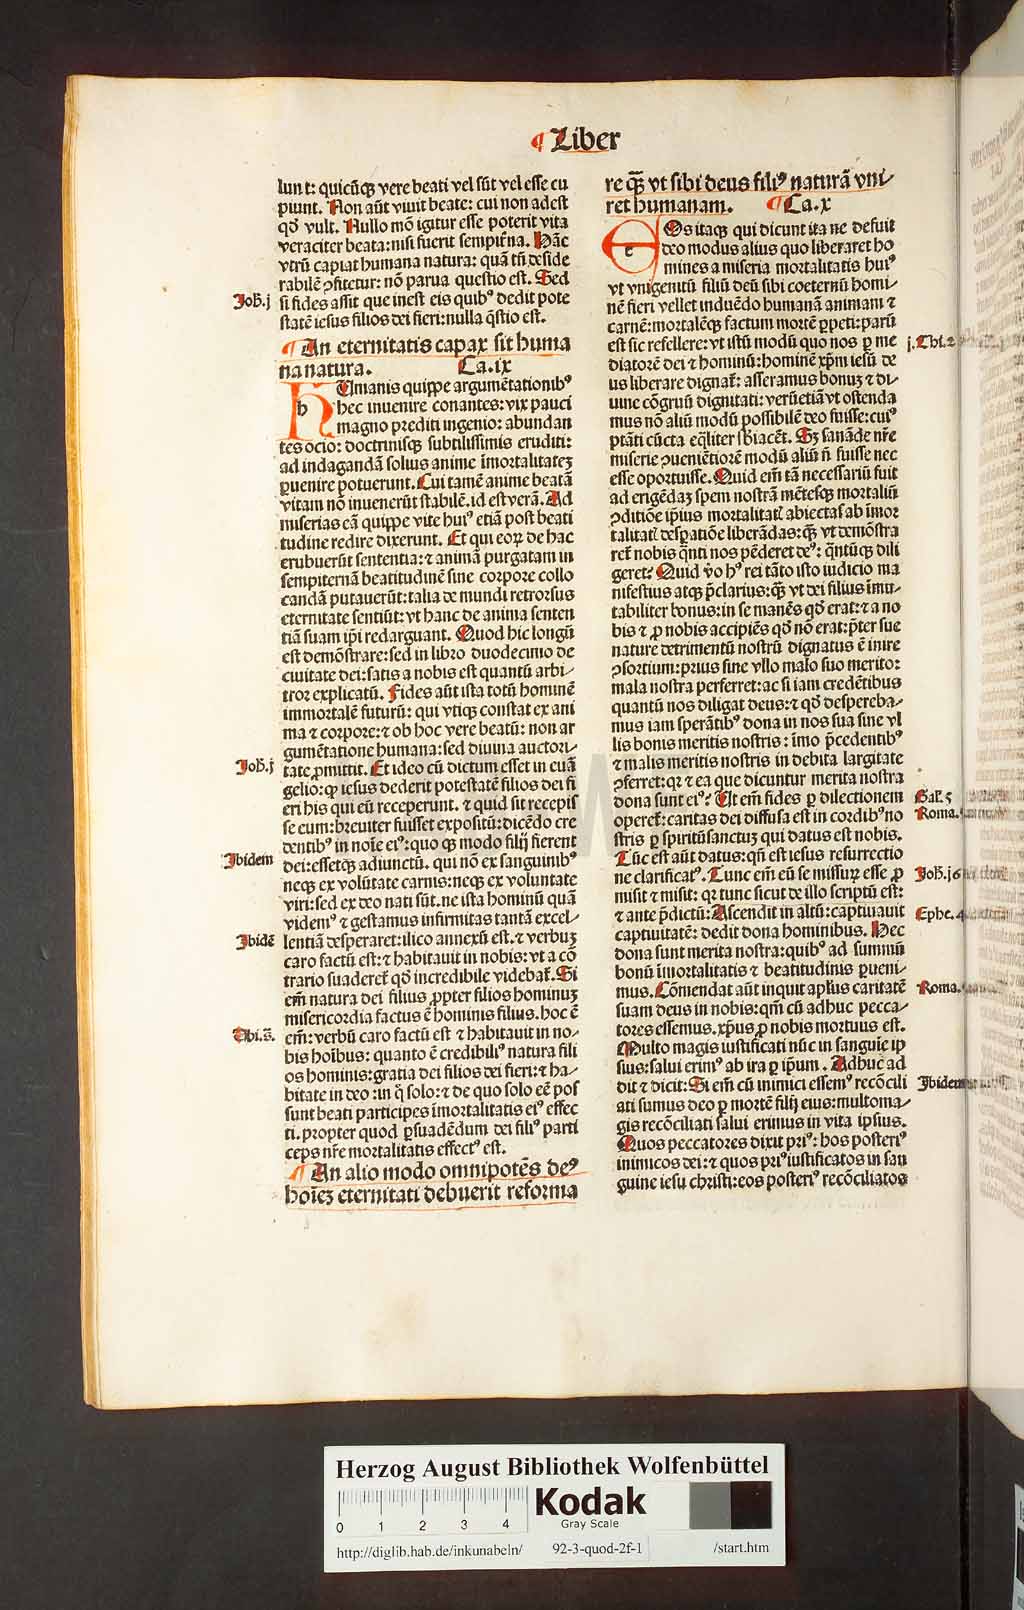 ¶ Liber
lun t: quicūqꝫ vere beati vel sūt vel esse cu
piunt. Non aūt viuit beate: cui non adest
qđ vult. Nullo mō igitur esse poterit vita
veraciter beata: nisi fuerit sempit̄na. Hāc
vtrū capiat humana natura: quā tn̄ deside
rabilē ꝓfitetur: nō parua questio est. Sed
Joh̄. j
si fides assit que inest eis quibꝰ dedit pote
statē iesus filios dei fieri: nulla q̄stio est.
¶ An eternitatis capax sit huma
na natura. Ca. ix
HUmanis quippe argumētationibꝰ
hec inuenire conantes: vix pauci
magno prediti ingenio: abundan
tes ocio: doctrinisqꝫ subtilissimis eruditi:
ad indagandā solius anime īmortalitateꝫ
ꝑuenire potuerunt. Cui tamē anime beatā
vitam nō inuenerūt stabilē. id est verā. Ad
miserias eā quippe vite huiꝰ etiā post beati
tudine redire dixerunt. Et qui eoꝝ de hac
erubuerūt sententia: ⁊ animā purgatam in
sempiternā beatitudinē sine corpore collo
candā putauerūt: talia de mundi retrorsus
eternitate sentiūt: vt hanc de anima senten
tiā suam ip̄i redarguant. Quod hic longū
est demōstrare: sed in libro duodecimo de
ciuitate dei: satis a nobis est quantū arbi⸗
tror explicatū. Fides aūt ista totū hominē
immortalē futurū: qui vtiqꝫ constat ex ani
ma ⁊ corpore: ⁊ ob hoc vere beatū: non ar
gumētatione humana: sed diuina auctori⸗
Joh̄. j
tate ꝓmittit. Et ideo cū dictum esset in euā
gelio: ꝙ iesus dederit potestatē filios dei fi
eri his qui eū receperunt. ⁊ quid sit recepis
se eum: breuiter fuisset expositū: dicēdo cre
dentibꝰ in noīe eiꝰ: quo qꝫ modo filij fierent
Ibidem
dei: essetqꝫ adiunctū. qui nō ex sanguinibꝰ
neqꝫ ex volūtate carnis: neqꝫ ex voluntate
viri: sed ex deo nati sūt. ne ista hominū quā
videmꝰ ⁊ gestamus infirmitas tantā excel⸗
Ibidē
lentiā desperaret: ilico annexū est. ⁊ verbuꝫ
caro factū est: ⁊ habitauit in nobis: vt a cō
trario suaderet̄ qđ incredibile videbat̄. Si
em̄ natura dei filius ꝓpter filios hominuꝫ
misericordia factus ē hominis filius. hoc ē
Vbi. s̄.
em̄: verbū caro factū est ⁊ habitauit in no⸗
bis hoībus: quanto ē credibiliꝰ natura fili
os hominis: gratia dei filios dei fieri: ⁊ ha⸗
bitate in deo: in q̄ solo: ⁊ de quo solo eē pos
sunt beati participes īmortalitatis eiꝰ effec
ti. propter quod ꝑsuadēdum dei filiꝰ parti
ceps nr̄e mortalitatis effectꝰ est.
¶ An alio modo omnipotēs deꝰ
hoīeꝫ eternitati debuerit reforma
re qꝫ̄ vt sibi deus filiꝰ naturā vni⸗
ret humanam. ¶ Ca. x
EOs itaqꝫ qui dicunt ita ne defuit
deo modus alius quo liberaret ho
mines a miseria mortalitatis huiꝰ
vt vnigenitū filiū deū sibi coeternū homi⸗
nē fieri vellet induēdo humanā animam ⁊
carnē: mortalēqꝫ factum mortē ꝑpeti: parū
j. Thi. 2
est sic refellere: vt istū modū quo nos ꝑ me
diatorē dei ⁊ hominū: hominē xp̄m iesū de
us liberare dignat̄: asseramus bonuꝫ ⁊ di⸗
uine cōgruū dignitati: verūetiā vt ostenda
mus nō aliū modū possibilē deo fuisse: cuiꝰ
ptāti cūcta eq̄liter sb̄iacēt. Sꝫ sanāde nr̄e
miserie ꝯuenientiorē modū aliū n̄ fuisse nec
esse oportuisse. Quid em̄ tā necessariū fuit
ad erigēdaꝫ spem nostrā mētesqꝫ mortaliū
ꝯditiōe ip̄ius mortalitatꝭ abiectas ab īmor
talitatꝭ desꝑatiōe liberādas: qꝫ̄ vt demōstra
ret̄ nobis q̄nti nos pēderet deꝰ: q̄ntūqꝫ dili
geret? Quid v̊o hꝰ rei tāto isto iudicio ma
nifestius atqꝫ p̄clarius: qꝫ̄ vt dei filius īmu⸗
tabiliter bonus: in se manēs qđ erat: ⁊ a no
bis ⁊ ꝓ nobis accipiēs qđ nō erat: p̄ter sue
nature detrimentū nostrū dignatus ē inire
ꝯsortium: prius sine vllo malo suo merito:
mala nostra perferret: ac si iam credētibus
quantū nos diligat deus: ⁊ qđ despereba⸗
mus iam sperātibꝰ dona in nos sua sine vl
lis bonis meritis nostris: īmo p̄cedentibꝰ
⁊ malis meritis nostris in debita largitate
ꝯferret: qr ⁊ ea que dicuntur merita nostra
Gal̄. 5
dona sunt eiꝰ? Ut em̄ fides ꝑ dilectionem
Roma.
operet̄: caritas dei diffusa est in cordibꝰ no
stris ꝑ spiritū sanctuꝫ qui datus est nobis.
Tūc est aūt datus: qn̄ est iesus resurrectio
Joh̄. j6
ne clarificatꝰ. Tunc em̄ eū se missuꝝ esse ꝓ
misit ⁊ misit: qꝛ tunc sicut de illo scriptū est:
Ephe. 4
⁊ ante p̄dictū: Ascendit in altū: captiuauit
captiuitatē: dedit dona hominibus. Hec
dona sunt merita nostra: quibꝰ ad summū
bonū īmortalitatis ⁊ beatitudinis ꝑueni⸗
Roma.
mus. Cōmendat aūt inquit ap̄lus caritatē
suam deus in nobis: qm̄ cū adhuc pecca⸗
tores essemus. xp̄us ꝓ nobis mortuus est.
Multo magis iustificati nūc in sanguīe ip
sius: salui erimꝰ ab ira ꝑ ip̄um. Adhuc ad
Ibidem
dit ⁊ dicit: Si em̄ cū inimici essemꝰ recōcili
ati sumus deo ꝑ mortē filij eius: multoma⸗
gis recōciliati salui erimus in vita ipsius.
Quos peccatores dixit priꝰ: hos posteriꝰ
inimicos dei: ⁊ quos priꝰ iustificatos in san
guine iesu christi: eos posteriꝰ recōciliatos
Herzog August Bibliothek Wolfenbüttel
0 1 2 3 4
Kodak
Gray Scale
http://diglib.hab.de/inkunabeln/ 92-3-quod-2f-1 /start.htm